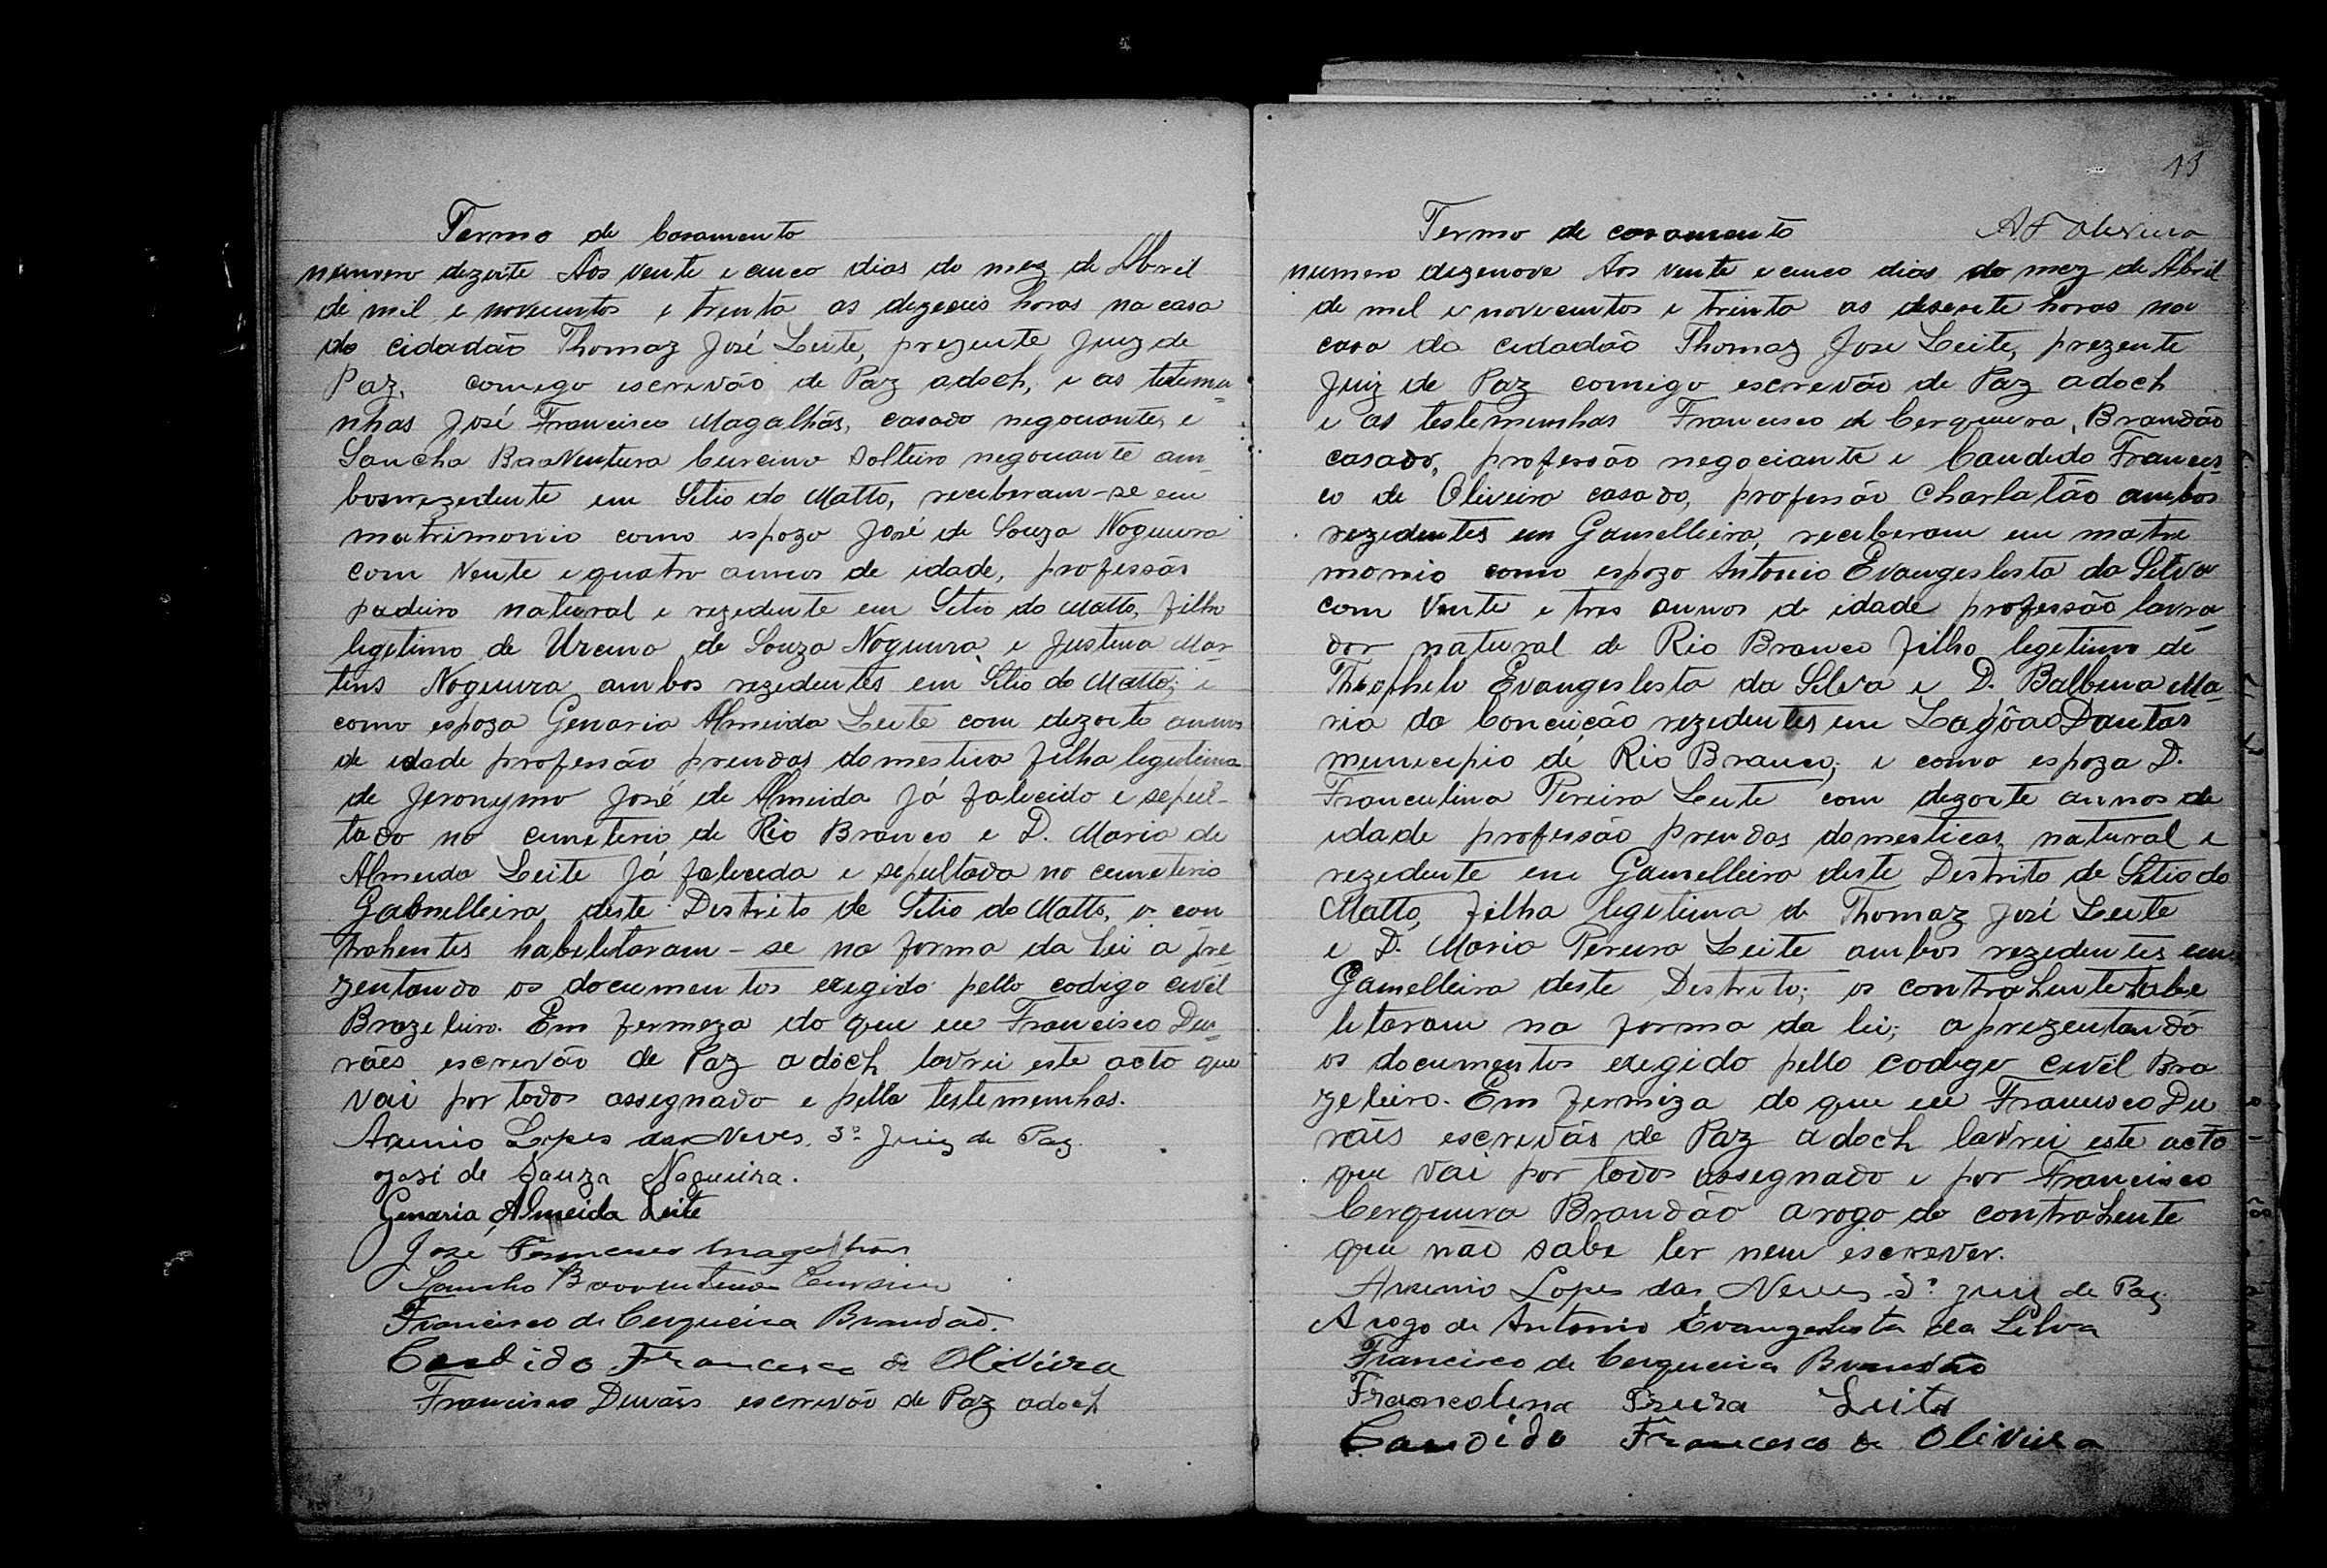 Termo de Casamento
numero dezoite Aos vente e cinco dias do mez de Abril
de mil e novecentos e trenta as dezeseis horas na casa
do cidadão Thomaz José Leite, prezente Juiz de
Paz, comigo escrevão de Paz adoch, e as testemu-
nhas José Francisco Magalhãs, casado negociante, e
Sancho Boaventura Curcino solteiro negociante am-
bos rezedente em Sitio do Matto, receberam-se em
matrimonio como espozo José de Souza Nogueira
com vente e quatro annos de idade, professão
padeiro natural e rezedente em Sitio do Matto, filho
legitimo de Urcino de Souza Nogueira e Justina Mar-
tins Nogueira ambos rezedentes em Sitio do Matto; e
como espoza Genaria Almeida Leite com dezoito annos
de idade professão prendas domestica filha legitima
de Jeronymo José de Almeida já falecido e sepul-
tado no cemeterio de Rio Branco e D. Maria de
Almeida Leite já falecida e sepultada no cemeterio
Gabmelleira deste Destrito de Sitio do Matto, os con
trahentes habelitaram-se na forma da lei a pre
zentando os documentos exegido pello codigo civil
Brazeleiro. Em fermeza do que eu Francisco Du-
rães escrevão de Paz adoch lavrei este acto que
vai por todos assegnado e pella testemunhas.
Arsenio Lopes das Neves, 3º Juiz de Paz.
José de Souza Nogueira.
Genaria Almeida Leite
José Francisco Magalhães
Sancho Boaventura Curcino
Francisco de Cerqueira Brandão.
Candido Francisco de Oliveira
Francisco Durães escrevão de Paz adoch
13
Termo de casamento A F Oliveira
numero dezenove Aos vente e cinco dias do mez de Abril
de mil e novecentos e trinta as desesete horas na
casa do cidadão Thomaz José Leite, prezente
Juiz de Paz comigo escrevão de Paz adoch
e as testemunhas Francisco de Cerqueira Brandão
casado, professão negociante e Candido Francis-
co de Oliveira casado, professão charlatão ambos
rezedentes em Gamelleira, receberam em matri
monio como espozo Antonio Evangeslesta da Silva
com vente e tres annos de idade professão lavra
dor natural de Rio Branco filho legetimo de
Theophelo Evangeslesta da Selva e D. Balbina Ma-
ria da Conceição rezedentes em Lagôa Dantas
municipio de Rio Branco; e como espoza D.
Francelina Pereira Leite com dezoite annos de
idade professão prendas domesticas natural e
rezedente em Gamelleira deste Destrito de Sitio do
Matto, filha legetima de Thomaz José Leite
e D. Maria Pereira Leite ambos rezedentes em
Gamelleira deste Destrito; os contrahente habe
letaram na forma da lei; aprezentando
os documentos exegido pello codego civil Bra
zeleiro. Em fermeza do que eu Francisco Du
rães escrevão de Paz adoch lavrei este acto
que vai por todos assegnado e por Francisco
Cerqueira Brandão arogo do contrahente
que não sabe ler nem escrever.
Arsenio Lopes das Neves 3º juiz de Paz
A rogo de Antonio Evangelesta da Silva
Francisco de Cerqueira Brandão
Francelina Preira Leite
Candido Francisco de Oliveira